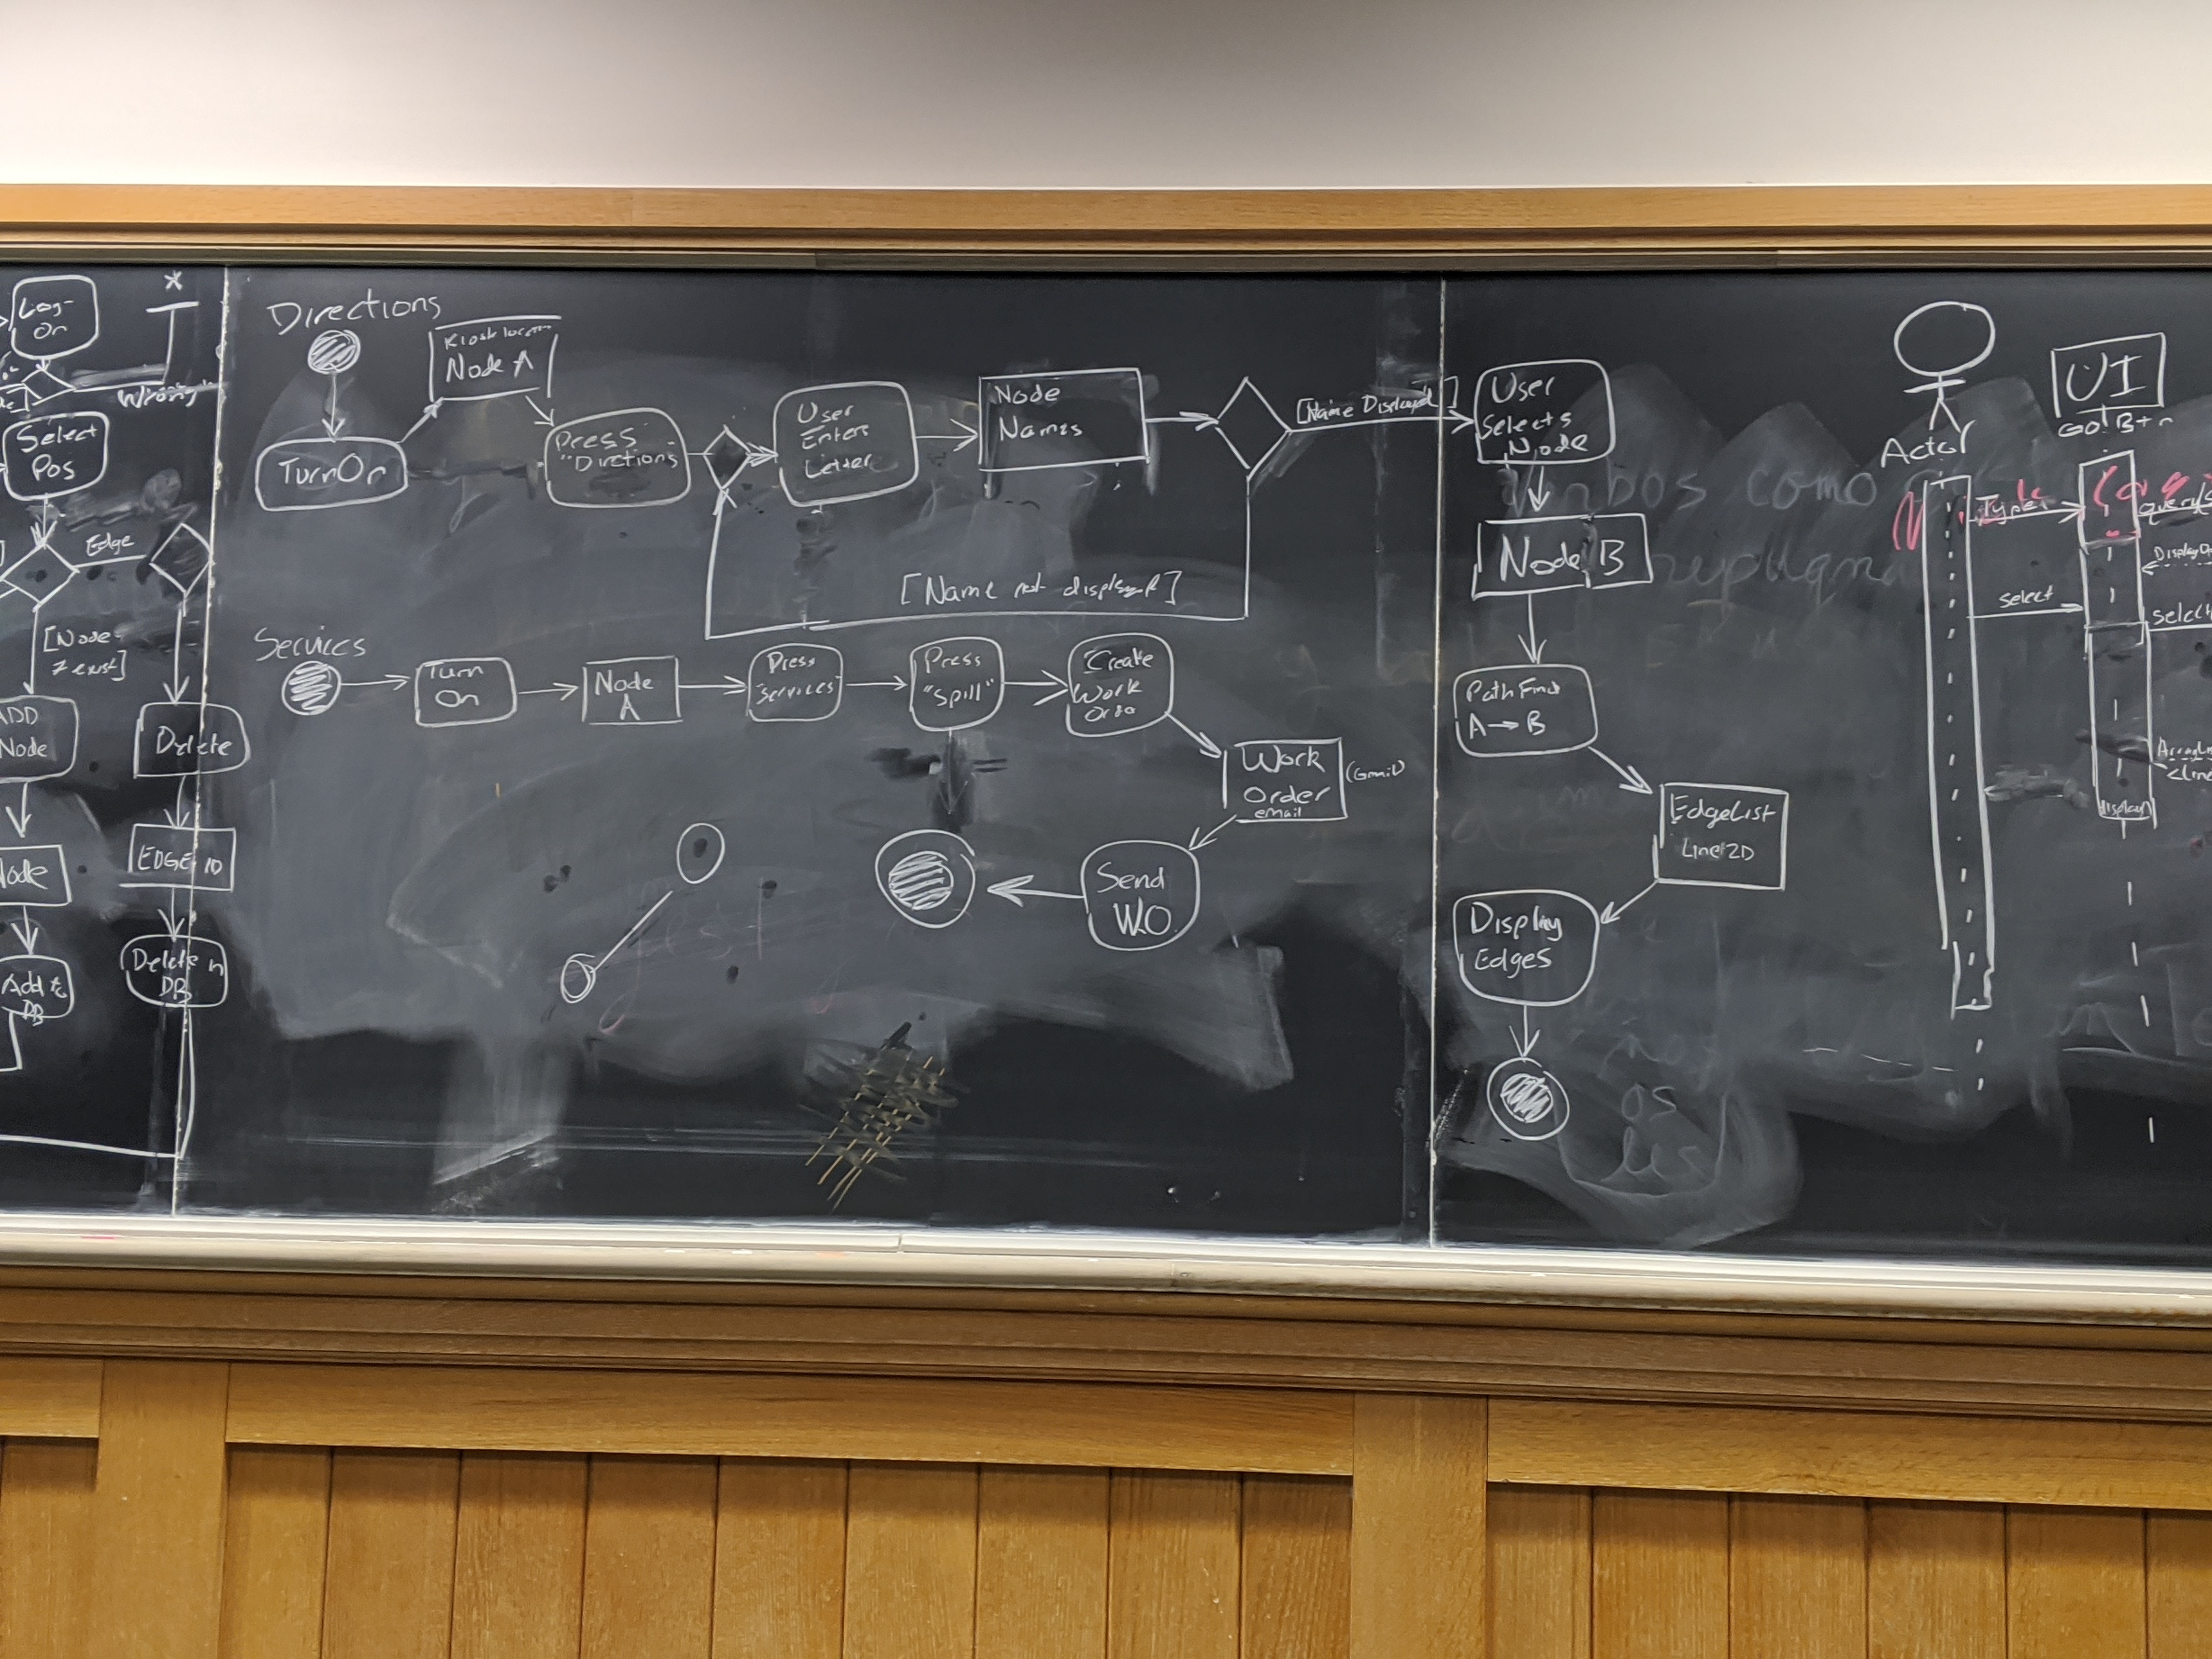 Log-
On
Wrong
Select
Pos
Edge
[Node
≠ exist]
ADD
Node
Delete
Node
EDGE ID
Add to
DB
Delete in
DB
Directions
Node A
Turn On
Press
"Dirctions
User
Enters
Letter
Node
Names
[Name Displayed]
[Name not displayed]
User
Selects
Node
Node B
PathFind
A → B
EdgeList
Line2D
Display
Edges
Services
Turn
On
Node
A
Press
"Services"
Press
"Spill"
Create
Work
Work
Order
email
(Gmail)
Send
W.O.
Actor
UI
Go Btn
select
display
como
os